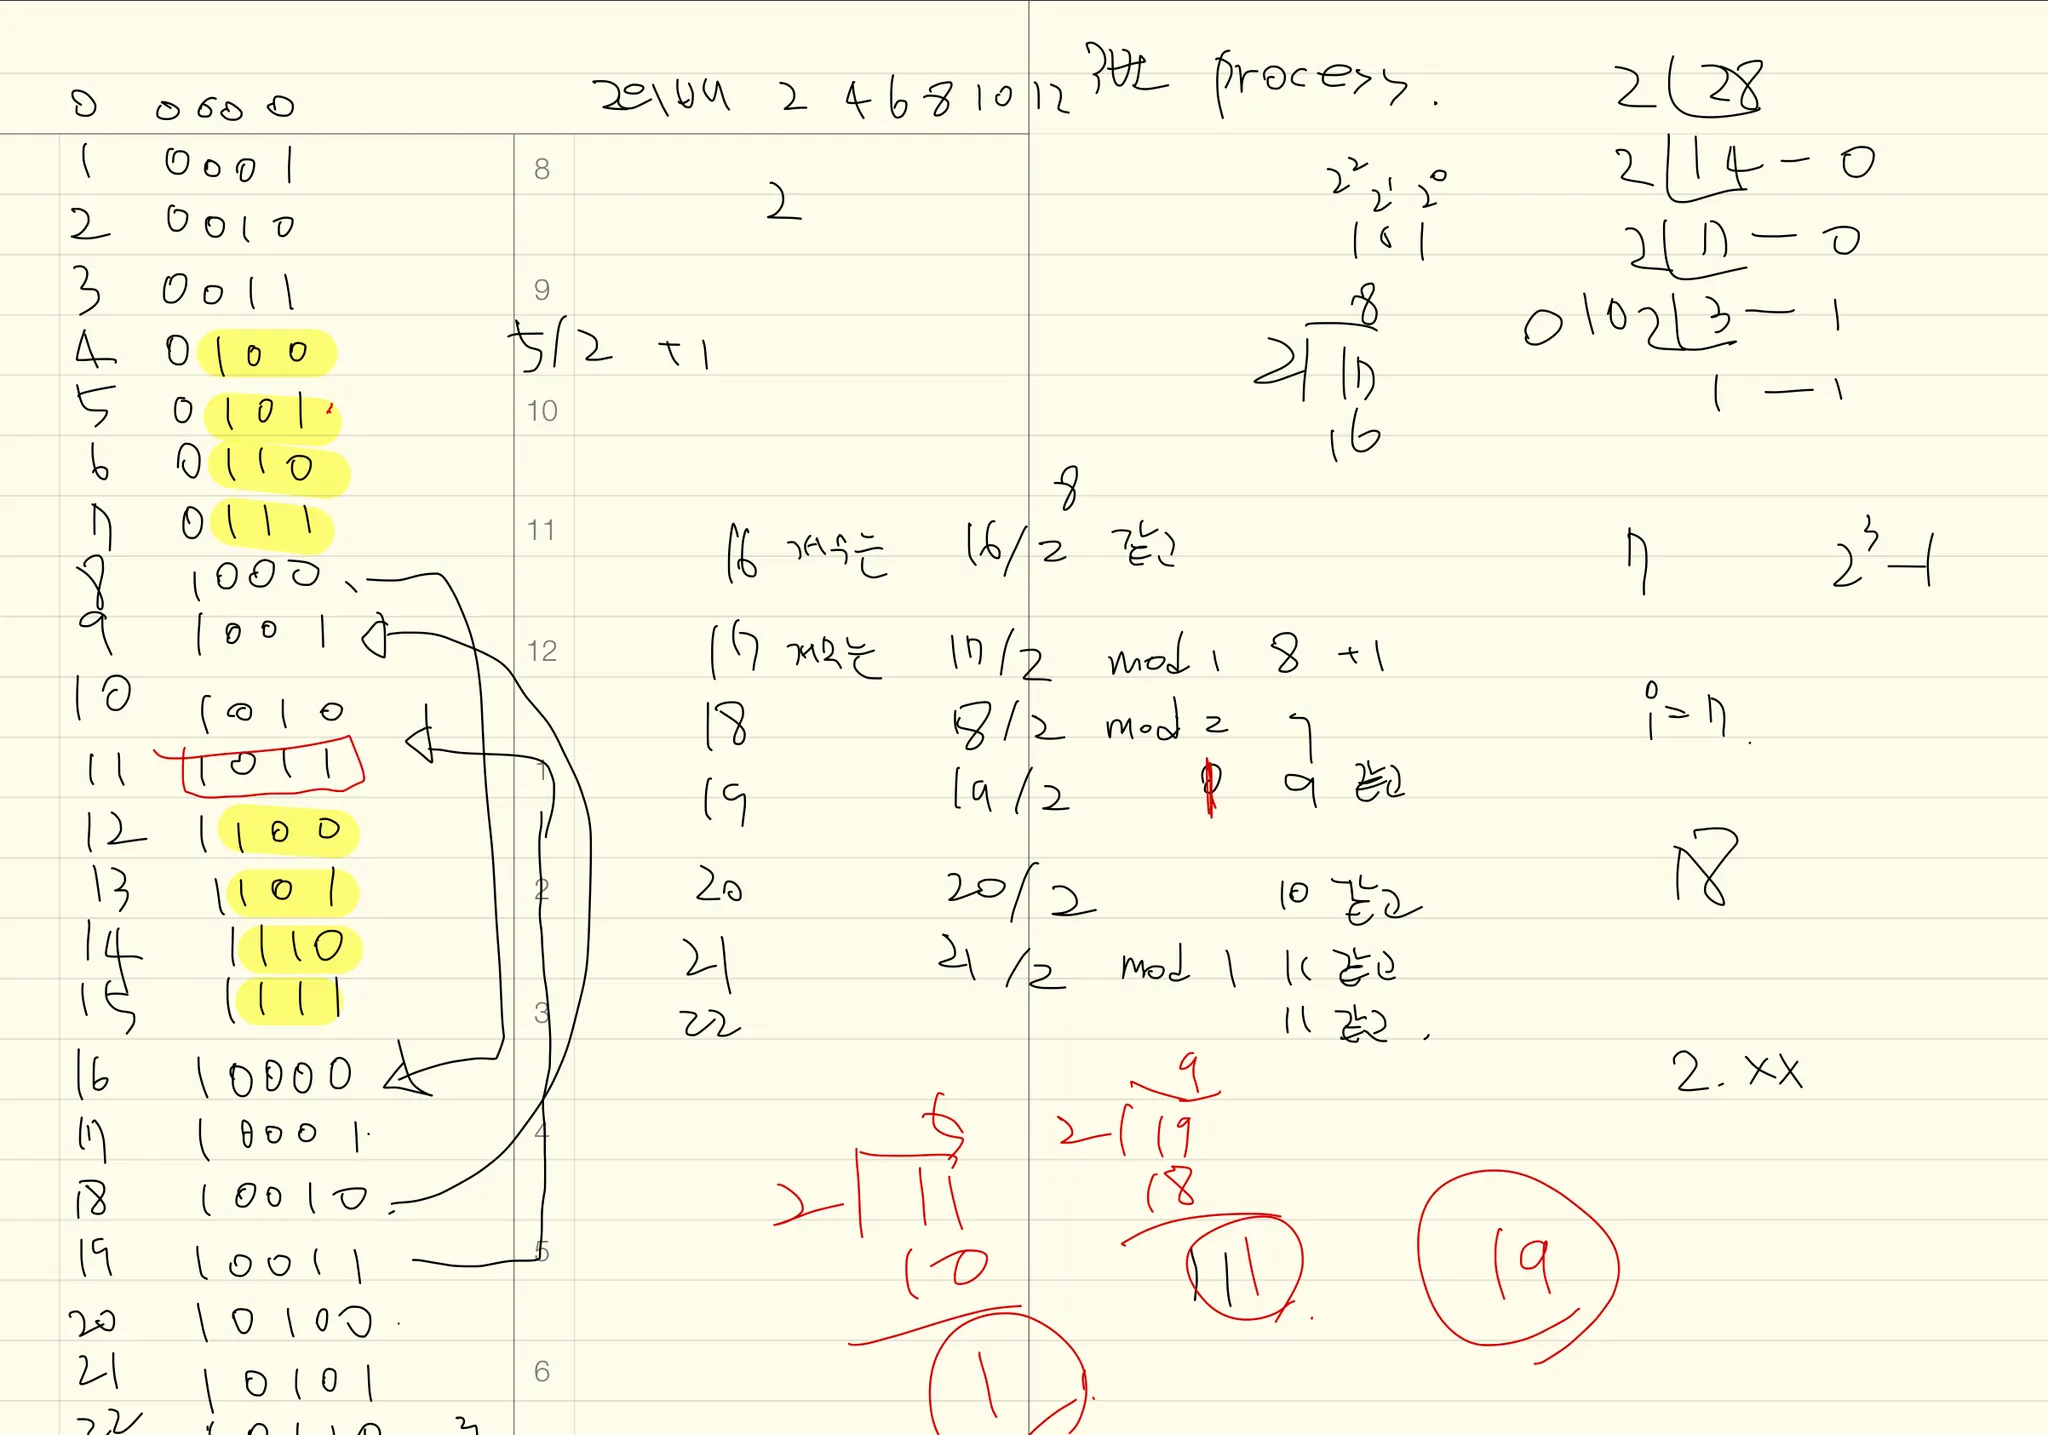 0 0000
1 0001
2 0010
3 0011
4 0100
5 0101
6 0110
7 0111
8 1000
9 1001
10 1010
11 1011
12 1100
13 1101
14 1110
15 1111
16 10000
17 10001
18 10010
19 10011
20 10100
21 10101
22 10110
8
9
10
11
12
1
2
3
4
5
6
2 4 6 8 10 12
2
5/2 +1
process.
2² 2¹ 2⁰
101
8
2 17
16
2 28
2 14 - 0
2 7 - 0
010 2 3 - 1
1 - 1
8
16 개수는 16/2 같고
17 개수는 17/2 mod 1 8 +1
18 18/2 mod 2 9
19 19/2 9 같고
20 20/2 10 같고
21 21/2 mod 1 11 같고
22 11 같고.
7 2³-1
0
i = 7.
18
2.xx
5
2 11
10
1
9
2 19
18
1
19